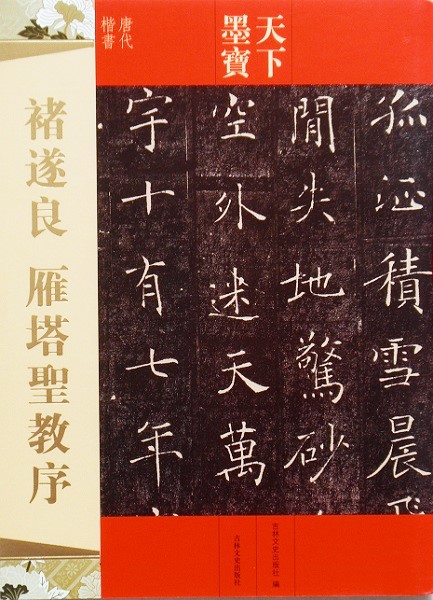 天下
墨寶
唐代
楷書
褚遂良 雁塔聖教序
孤征積雪晨飛
閒失地驚砂夕
空外迷天萬
宇十有七年
吉林文史出版社 編
吉林文史出版社